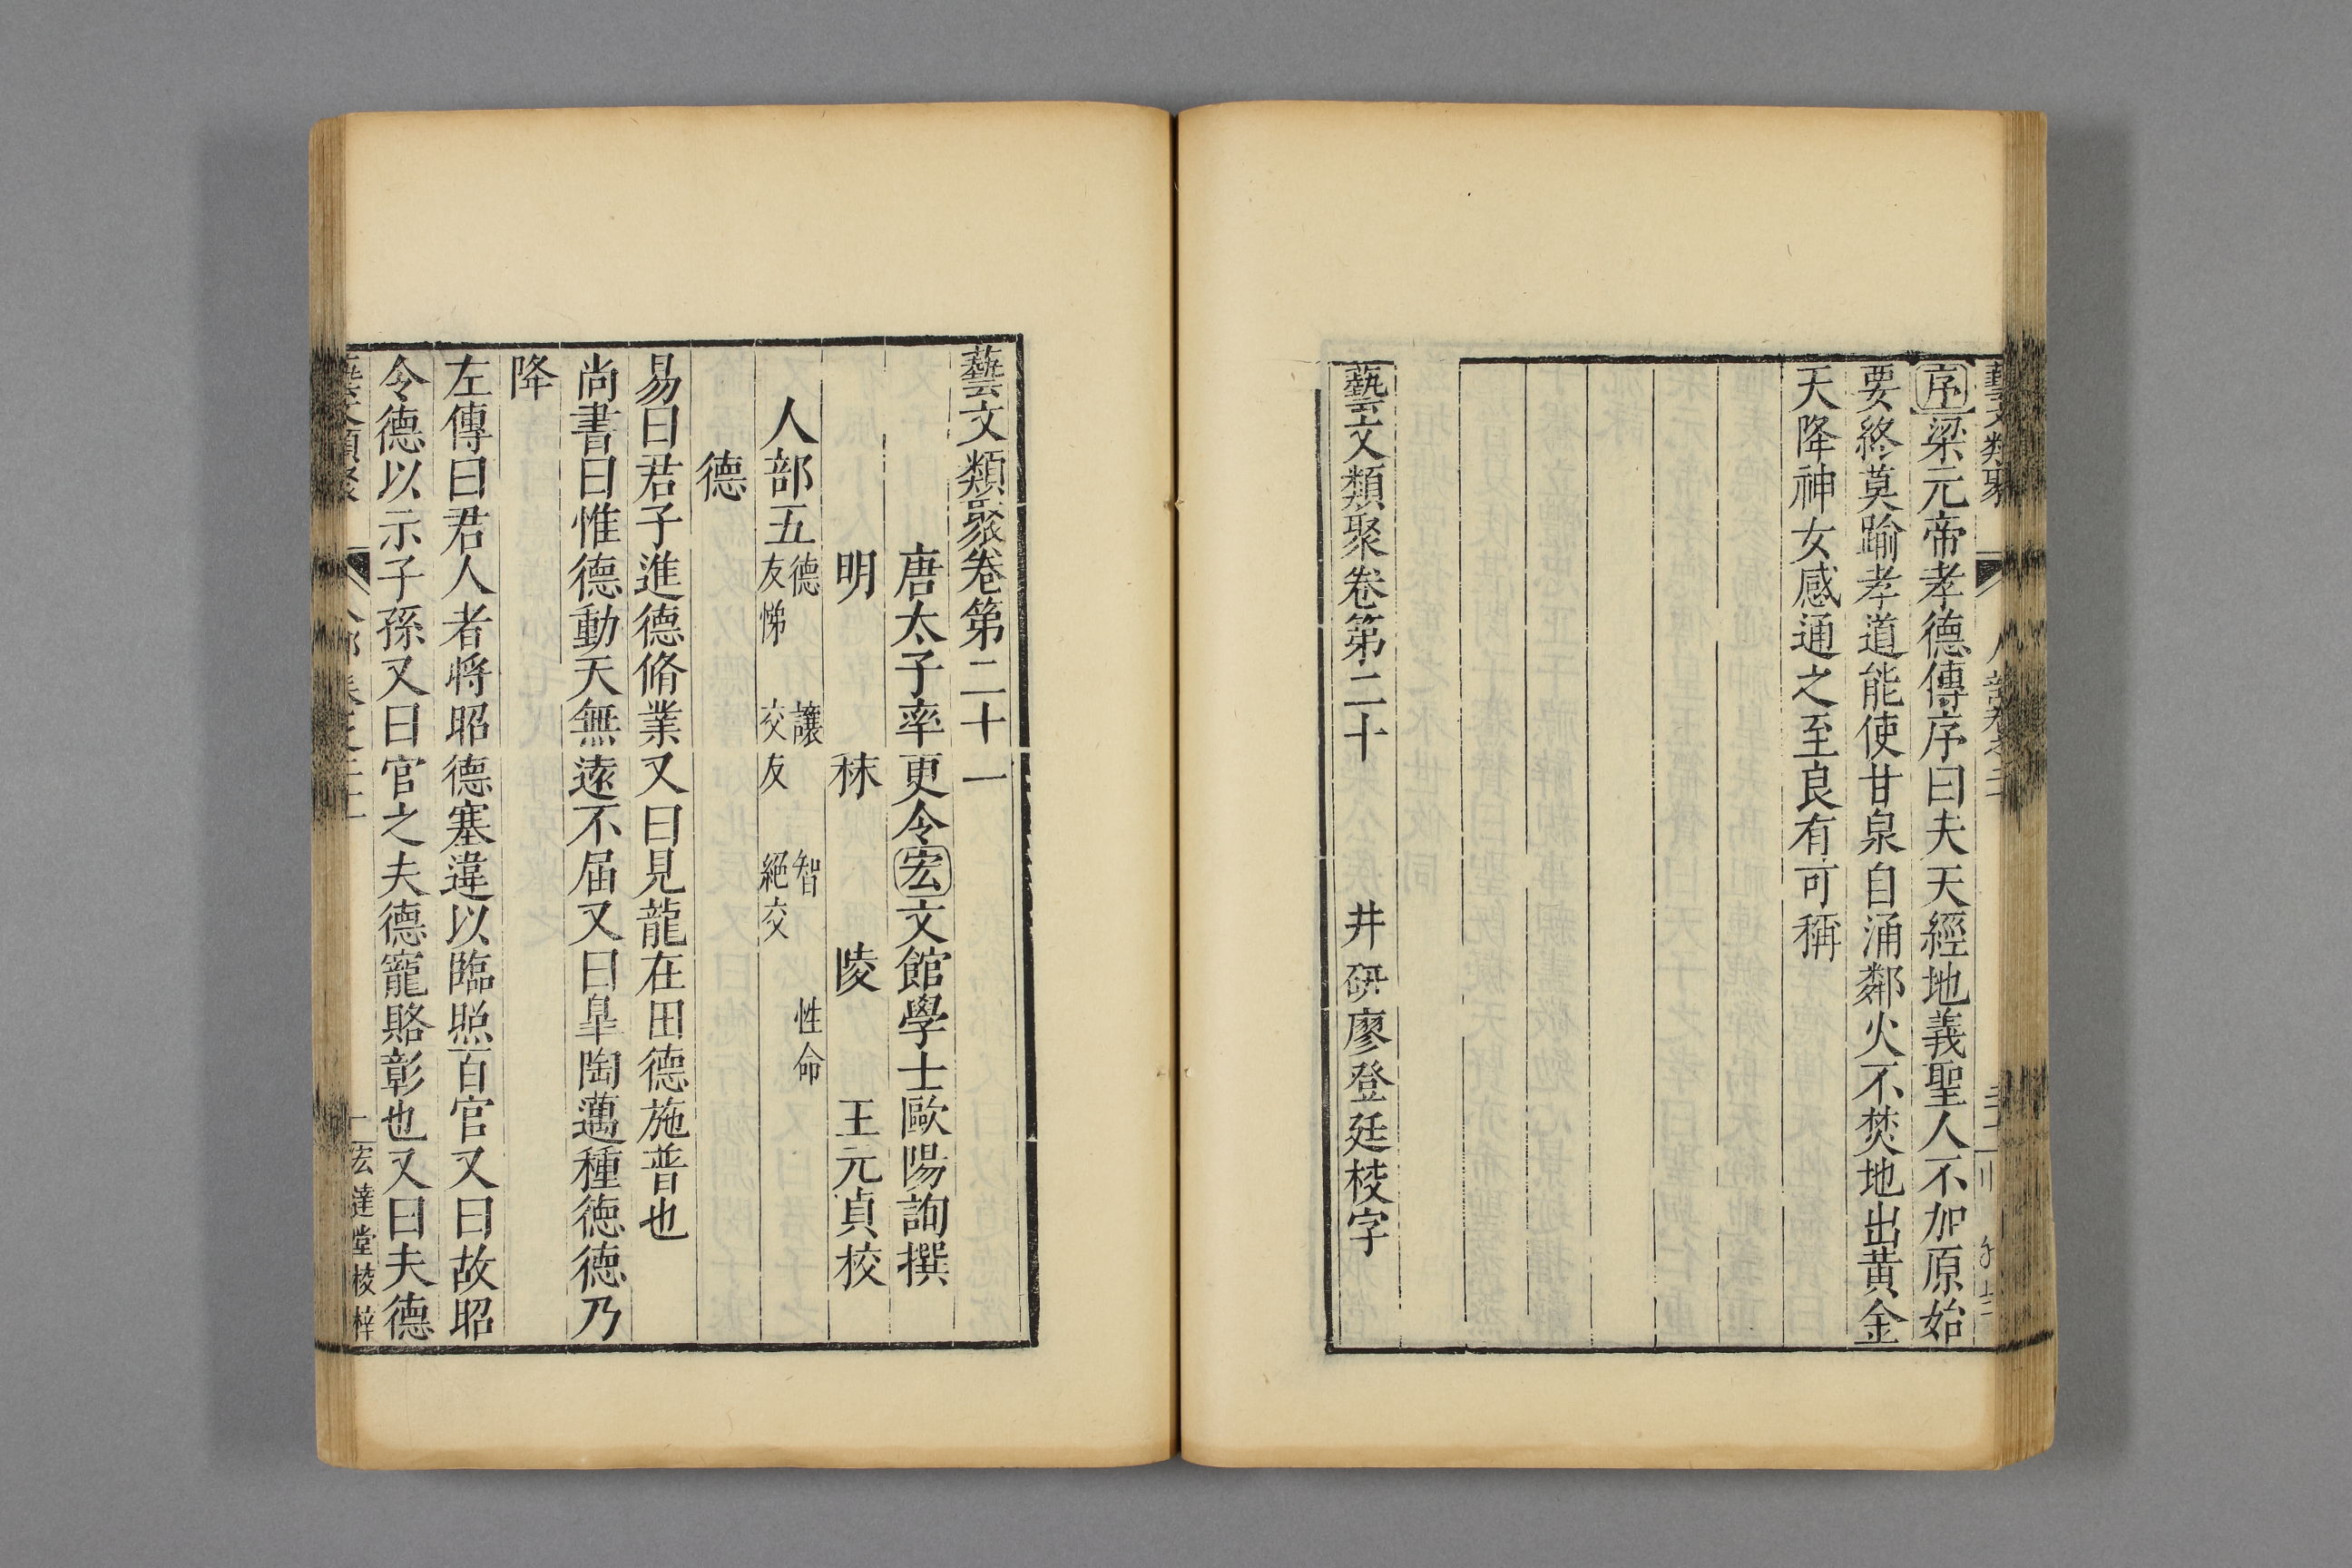 序梁元帝孝德傳序曰夫天經地義聖人不加原始
要終莫踰孝道能使甘泉自涌鄰火不焚地出黃金
天降神女感通之至良有可稱
藝文類聚卷第二十 井研廖登廷校字
藝文類聚卷第二十一
唐太子率更令宏文館學士歐陽詢撰
明 秣 陵 王元貞校
人部五 德 讓 智 性命
友悌 交友 絕交
德
易曰君子進德脩業又曰見龍在田德施普也
尚書曰惟德動天無遠不届又曰皐陶邁種德德乃
降
左傳曰君人者將昭德塞違以臨照百官又曰故昭
令德以示子孫又曰官之失德寵賂彰也又曰夫德
宏達堂校梓